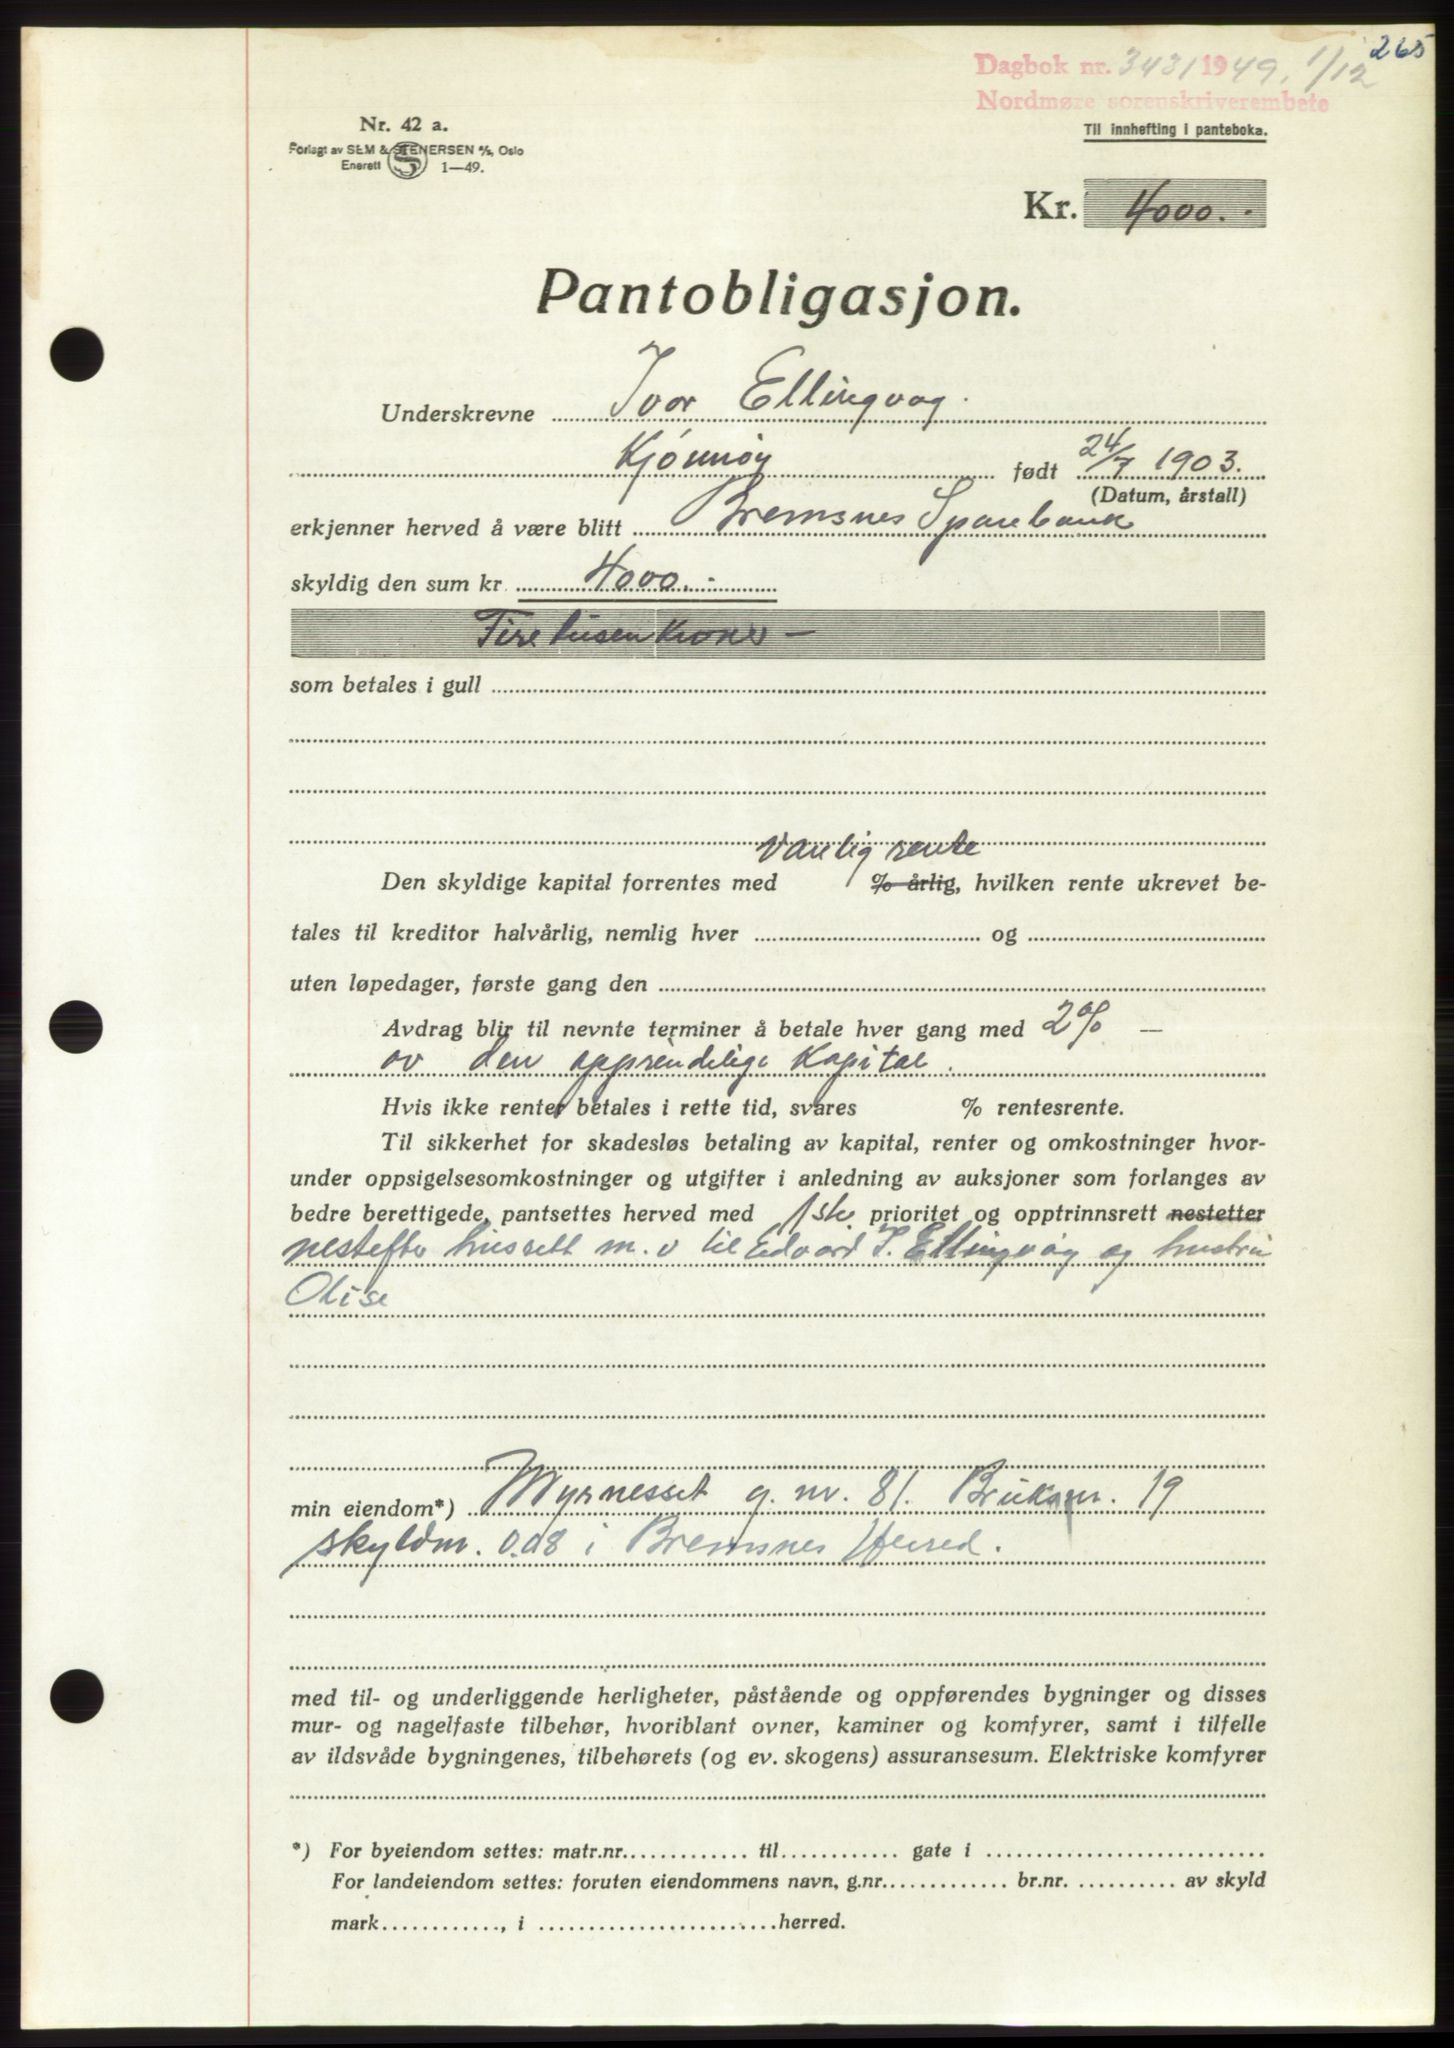 265
Dagbok nr. 3431 1949. 1/12
Nordmøre sorenskriverembete
Til innhefting i panteboka.
Nr. 42 a.
Forlagt av SEM & STENERSEN A/S, Oslo
Enerett S 1—49.
Kr. 4000.-
Pantobligasjon.
Underskrevne Ivar Ellingvåg.
Kjønnøy født 24/7 1903.
(Datum, årstall)
erkjenner herved å være blitt Bremsnes Sparebank
skyldig den sum kr. 4000.-
Fire tusen kroner —
som betales i gull
Vanlig rente
Den skyldige kapital forrentes med % årlig, hvilken rente ukrevet be-
tales til kreditor halvårlig, nemlig hver og
uten løpedager, første gang den
Avdrag blir til nevnte terminer å betale hver gang med 2% —
av den opprindelige Kapital.
Hvis ikke renter betales i rette tid, svares % rentesrente.
Til sikkerhet for skadesløs betaling av kapital, renter og omkostninger hvor-
under oppsigelsesomkostninger og utgifter i anledning av auksjoner som forlanges av
bedre berettigede, pantsettes herved med 1ste prioritet og opptrinnsrett nestetter
nestefter husrett m.v til Edvard I. Ellingvåg og hustru
Olise
min eiendom*) Myrnesset g. nr. 81. Bruksnr. 19
skyldm. 0.08 i Bremsnes Herred.
med til- og underliggende herligheter, påstående og oppførendes bygninger og disses
mur- og nagelfaste tilbehør, hvoriblant ovner, kaminer og komfyrer, samt i tilfelle
av ildsvåde bygningenes, tilbehørets (og ev. skogens) assuransesum. Elektriske komfyrer
*) For byeiendom settes: matr.nr. til gate i
For landeiendom settes: foruten eiendommens navn, g.nr. br.nr. av skyld
mark , i herred.